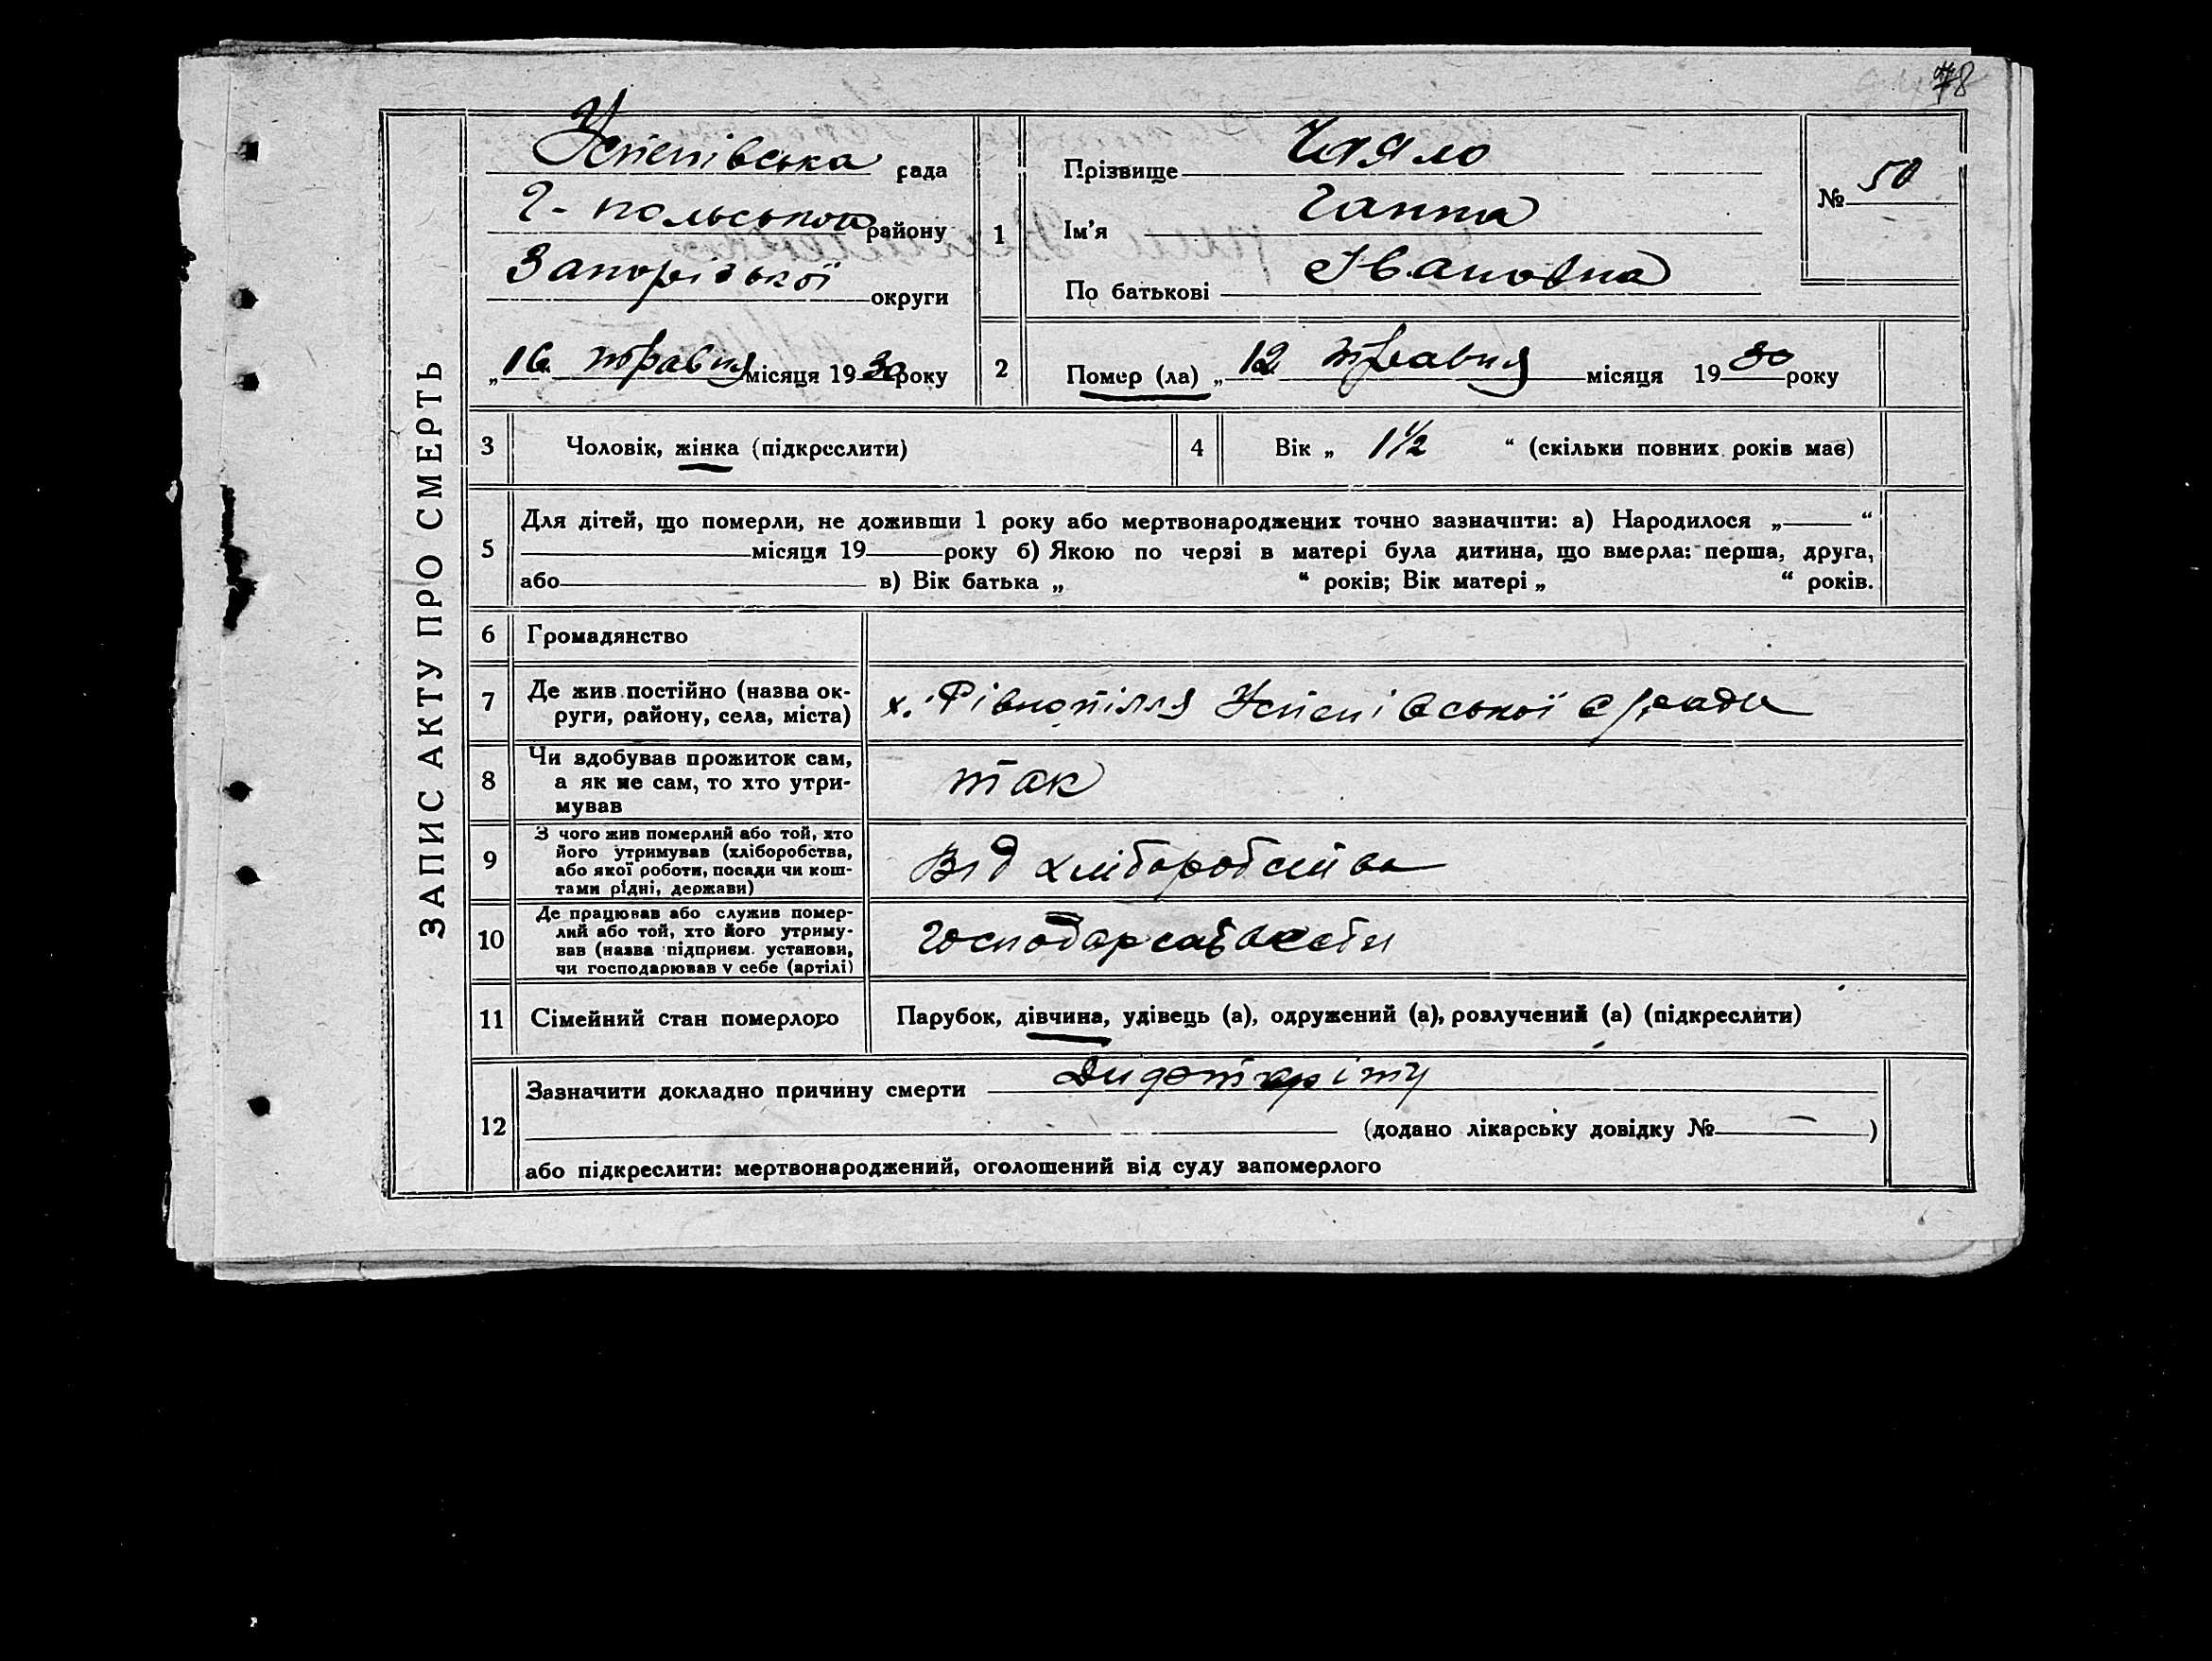 78
ЗАПИС АКТУ ПРО СМЕРТЬ
Успенівська рада
Г-польського району
Запорізької округи
„16 травня місяця 1930 року
1
Прізвище
Ім’я Ганна
По батькові Івановна
№ 50
2
Помер (ла) „12 травня місяця 1930 року
3 Чоловік, жінка (підкреслити)
4 Вік „ 1 1/2 “ (скільки повних років має)
5
Для дітей, що померли, не доживши 1 року або мертвонароджених точно зазначити: а) Народилося „ “
місяця 19 року б) Якою по черзі в матері була дитина, що вмерла: перша, друга,
або в) Вік батька „ “ років; Вік матері „ “ років.
6 Громадянство
7 Де жив постійно (назва ок-
руги, району, села, міста)
х. Рівнопілля Успенівської с/ради
8 Чи здобував прожиток сам,
а як не сам, то хто утри-
мував
так
9 З чого жив померлий або той, хто
його утримував (хліборобства,
або якої роботи, посади чи кош-
тами рідні, держави)
Від хліборобства
10 Де працював або служив помер-
лий або той, хто його утриму-
вав (назва підприєм. установи,
чи господарював у себе (артілі)
11 Сімейний стан померлого
Парубок, дівчина, удівець (а), одружений (а), розлучений (а) (підкреслити)
12
Зазначити докладно причину смерти
(додано лікарську довідку № — )
або підкреслити: мертвонароджений, оголошений від суду запомерлого